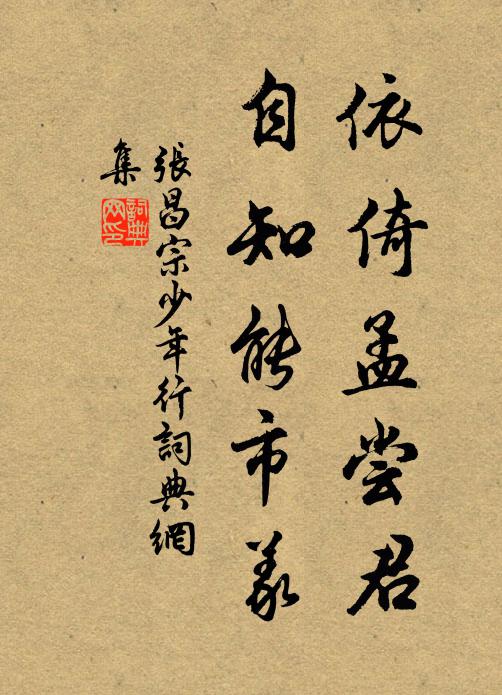 依倚孟尝君
自知能市义
張昌宗少年行詞典網
集
詞典
网印